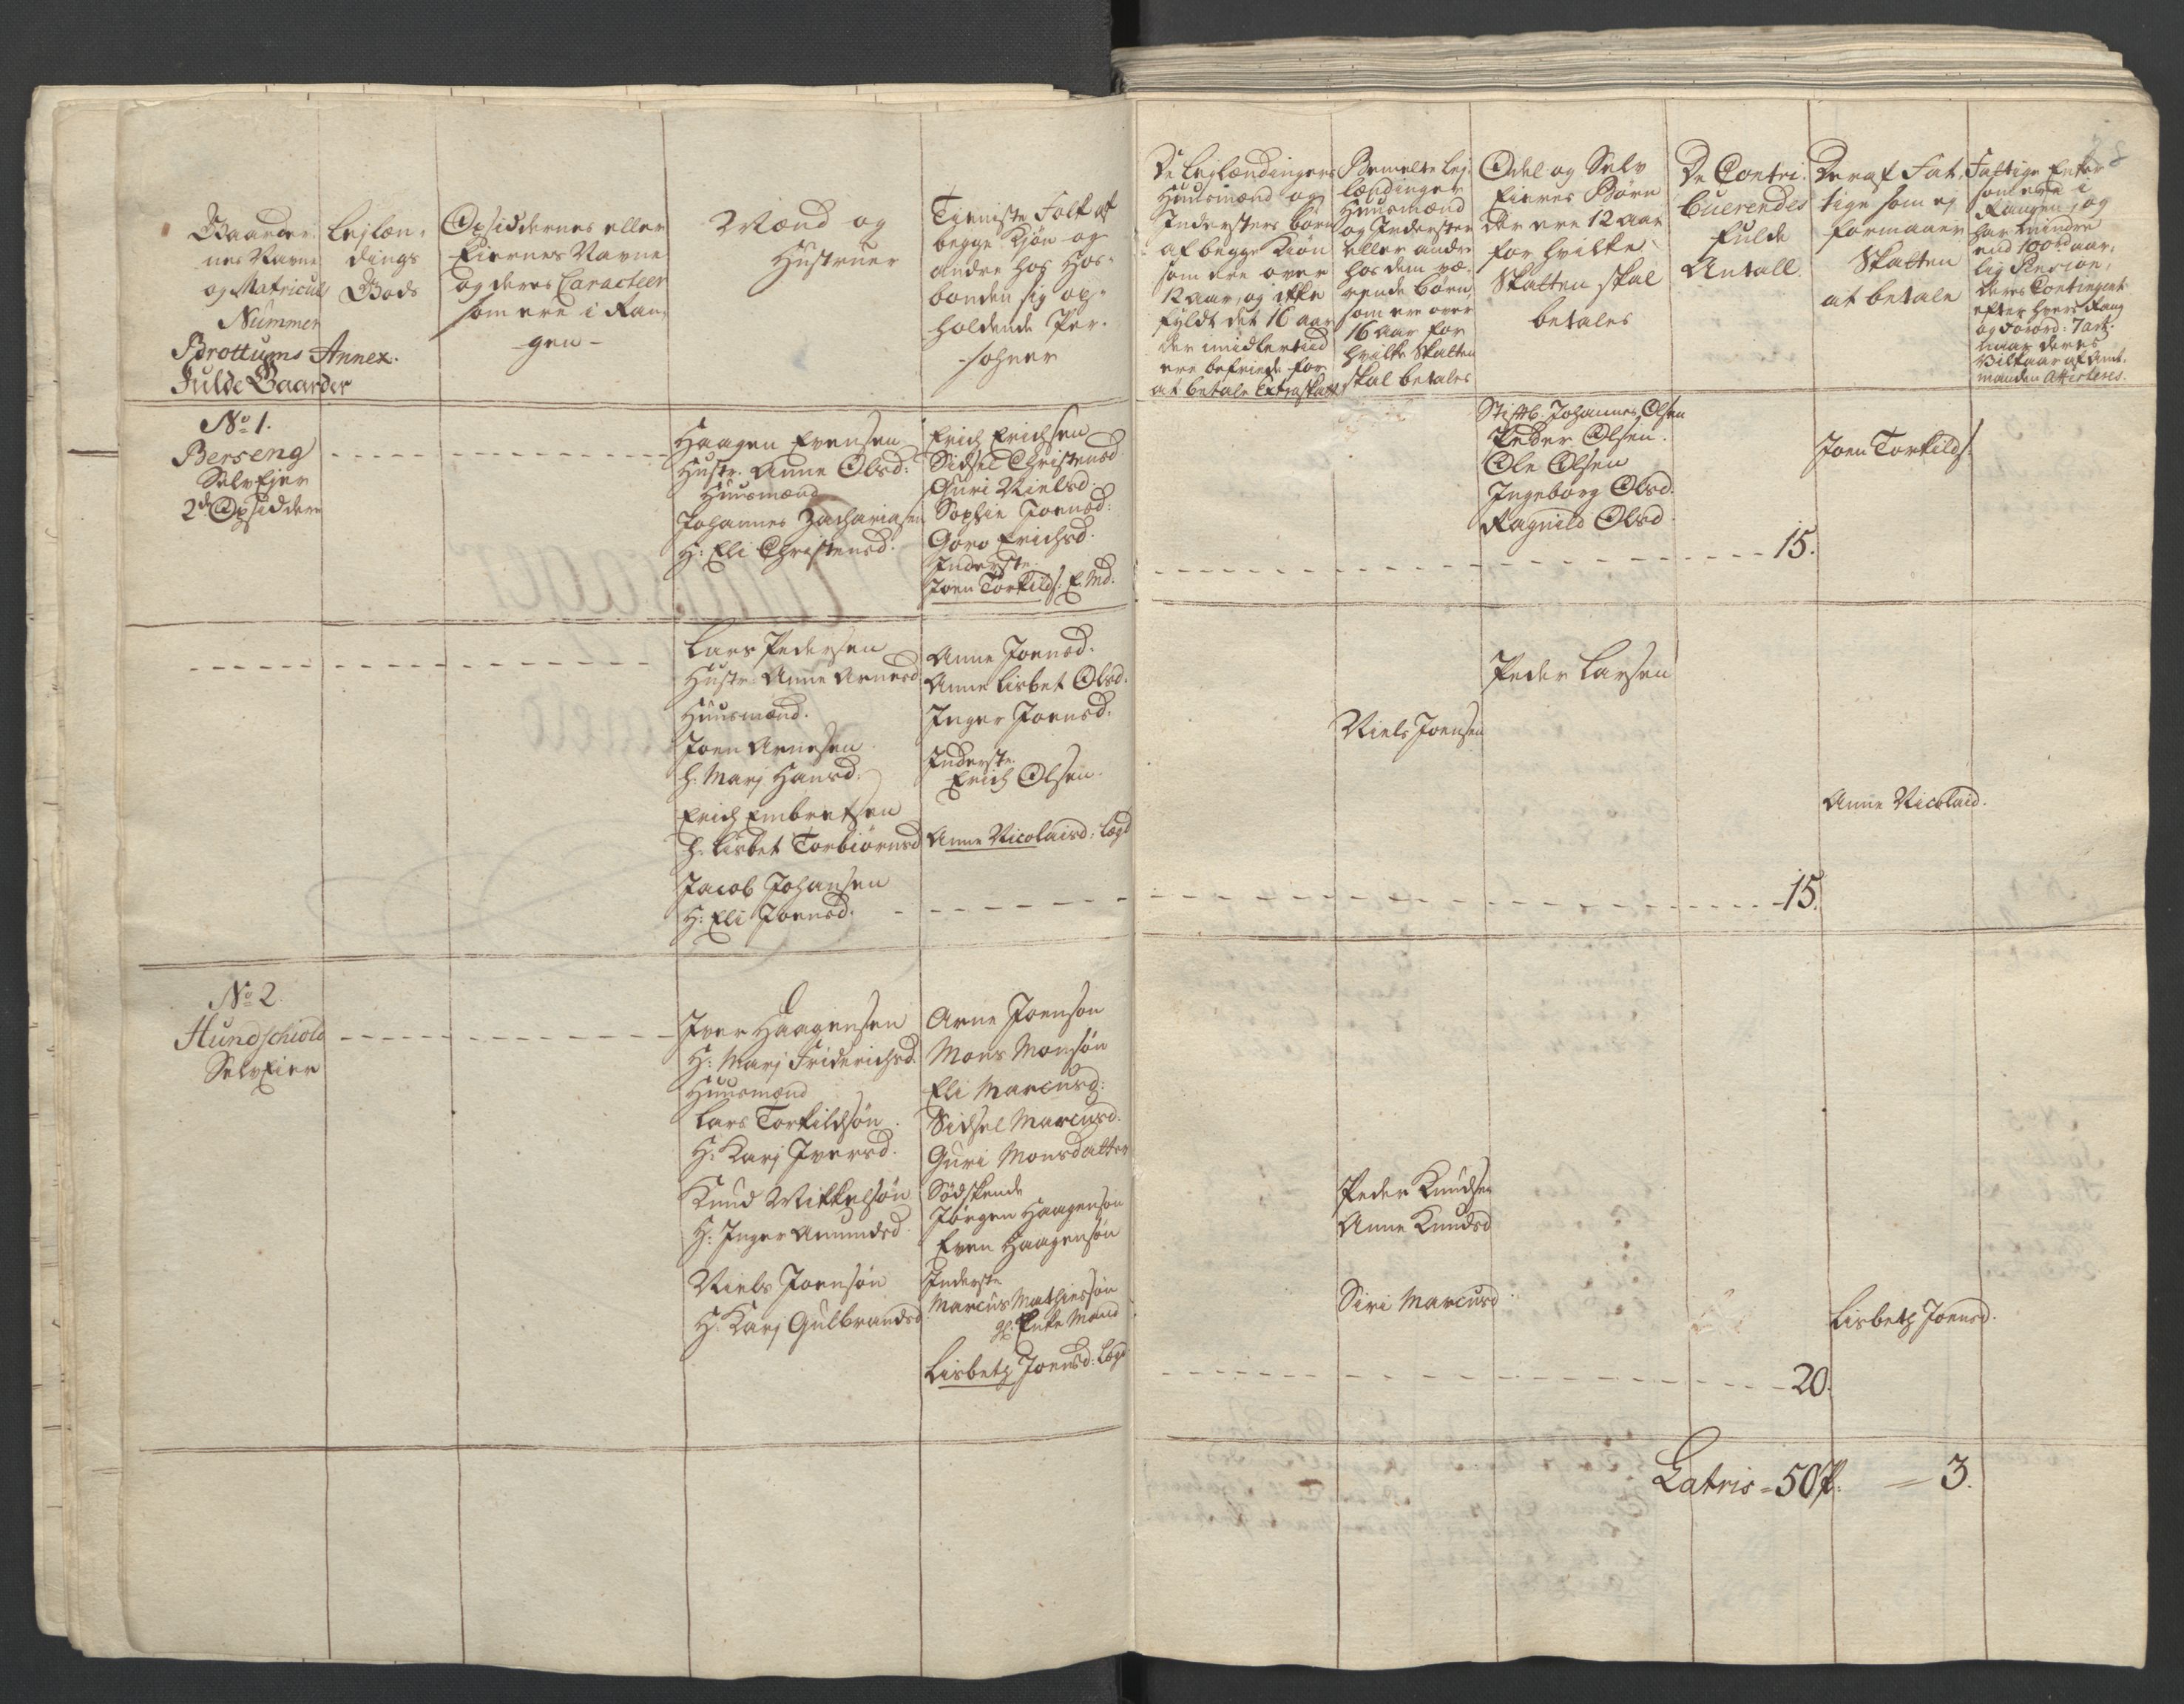 Gaarder-
nes Navne
og Matricul
Nummer
Brottums Annex.
Fulde Gaarder
Lejlæn-
dings
Gods
Opsiddernes eller
Eiernes Navne
og deres Caracteer
som ere i Ran-
gen
Mænd og
Hustruer
Tieniste Folk af
begge Kjøn og
andre hos Hos-
bonden sig op-
holdende Per-
sohner
De Lejlændingers
Huusmænd og
Indersters børn
af begge Kiøn
som ere over
12 aar, og ikke
fyldt det 16 aar
der imidlertiid
ere befriede for
at betale Extraskatt
Bemelte Lej-
lændinger
Huusmænd
og Inderster
eller andre
hos dem væ-
rende børn,
som ere over
16 aar for
hvilke Skatten
skal betales
Odel og Selv
Eieres Børn
der ere 12 aar
for hvilke
Skatten skal
betales
De Contri-
buerendes
fulde
Antall.
Deraf Fat-
tige som ej
formaaer
Skatten
at betale
Fattige Enker
som ere i
Rangen, og
har mindre
end 100rd aar-
lig Pension,
deres Contingent
efter hvers Rang
og Forord: 7 art:
naar deres
Vilkaar af Amt-
manden Attesteres.
No 1.
Berseng
SelvEjer
2de Opsiddere
Haagen Evensen
Hustr. Anne Olsd:
Huusmænd
Johannes Zachariasen
H: Eli Christensd.
Erich Erichsen
Sidsel Christensd
Guri Nielsd.
Sophie Joensd:
Goro Erichsd.
Inderste.
Joen Torkilds: E. Md.
Stiftb. Johannes Olsen
Peder Olsen.
Ole Olsen
Ingeborg Olsd.
Ragnild Olsd.
15.
Joen Torkilds:
Lars Pedersen
Hustr: Anne Arnesd
Huusmænd.
Joen Arnesen
h. Marj Hansd:
Erich Embretsen
h: Lisbet Torbiørnsd
Jacob Johansen
H: Eli Joensd.
Anne Joensd.
Anne Lisbet Olsd.
Inger Joensd:
Inderste.
Erich Olsen.
Anne Nicolaisd: Lægd
Niels Joensen
Peder Larsen
15.
Anne Nicolaid.
No 2.
Hundschiold
SelvEier
Iver Haagensen
H: Marj Friderichsd.
Huusmænd
Lars Torkildsøn
H: Karj Iversd.
Knud Mikkelsøn
H: Inger Amundsd.
Niels Joensøn
H: Karj Gulbrandsd
Arne Joensøn
Mons Monsøn
Eli Marcusd:
Sidsel Marcusd.
Guri Monsdatter
Sødskende
Jørgen Haagensøn
Even Haagensøn
Inderste
Marcus Mathiessøn
Enke Mand
Lisbeth Joensd: Lægd
Peder Knudsen
Anne Knudsd
Siri Marcusd
20.
Lisbeth Joensd.
Latris = 50 P.
= 3.